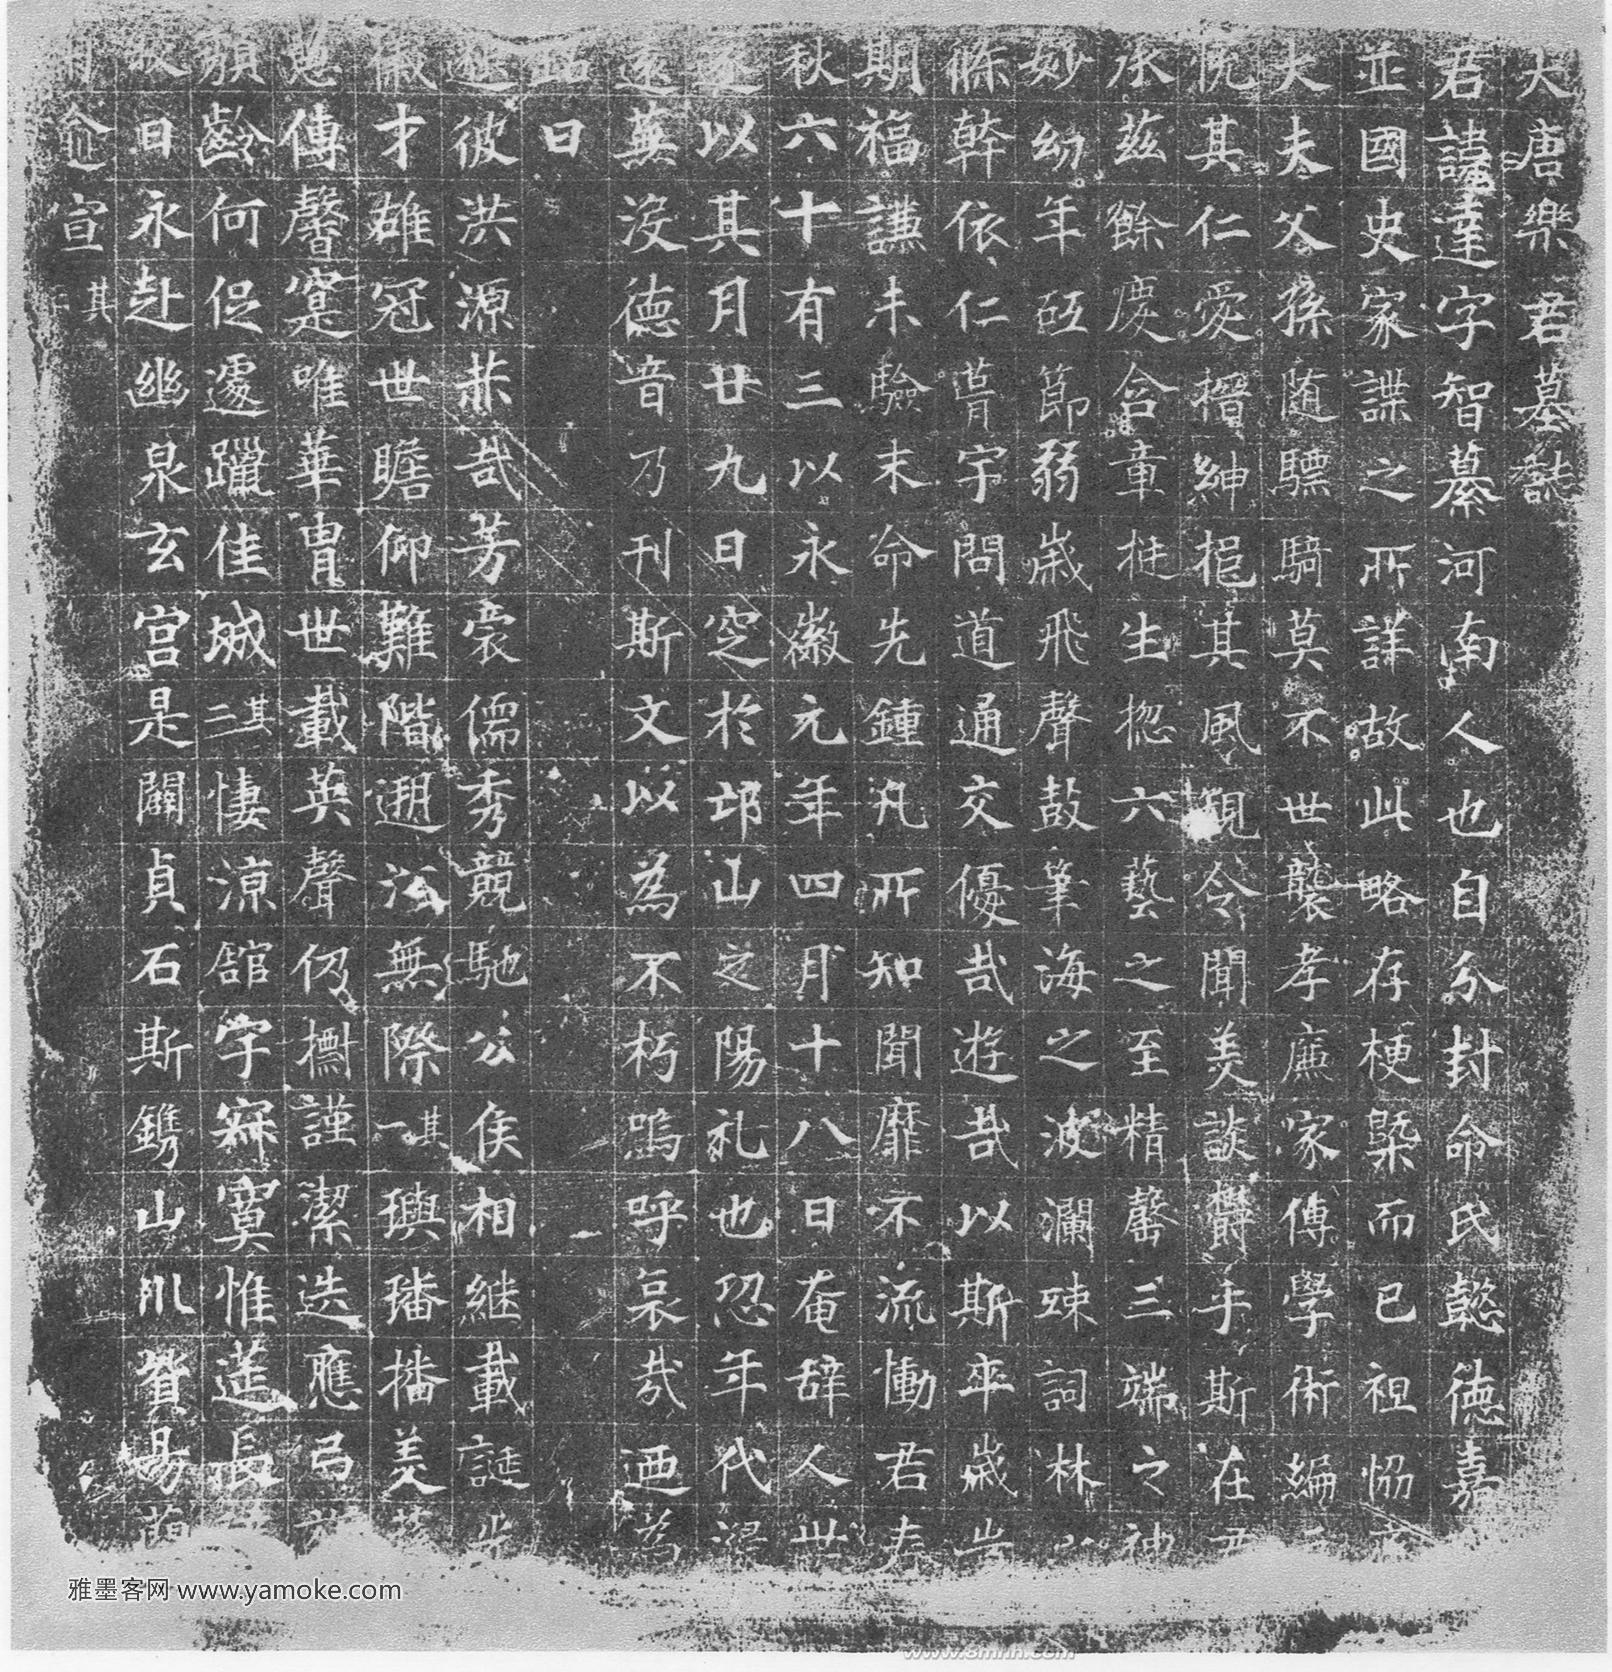 大唐樂君墓誌
君諱達字智𦾔河南人也自分封命氏懿德嘉
並國史家諜之所詳故此略存梗槩而已祖恊
大夫父孫隨驃騎莫不世襲孝廉家傳學術編
悦其仁愛搢紳挹其風覌令聞美談欝乎斯在
承茲餘慶含章挺生揔六藝之至精罄三端之神
妙幼年砥節弱歲飛聲鼓筆海之波瀾竦詞林
條幹依仁葺宇問道通交優哉遊哉以斯卒歲
期福謙未驗末命先鍾凡所知聞靡不流慟君春
秋六十有三以永徽元年四月十八日奄辞人世
遂以其月廿九日窆於邙山之陽礼也恐年代
遠蕪沒德音乃刊斯文以為不朽嗚呼哀哉迺為
銘曰
彼洪源恭哉芳裔儒秀競馳公侯相継載誕
才雄冠世瞻仰難階遡㳂無際其一璵璠播美
傳馨寔唯華胄世載英聲仍擲謹潔迭應弓
頹齡何促遽躐佳城其二悽涼館宇寂寞惟蓬長
日永赴幽泉玄宮是闢貞石斯鐫山川貿易
宣其
雅墨客网 www.yamoke.com